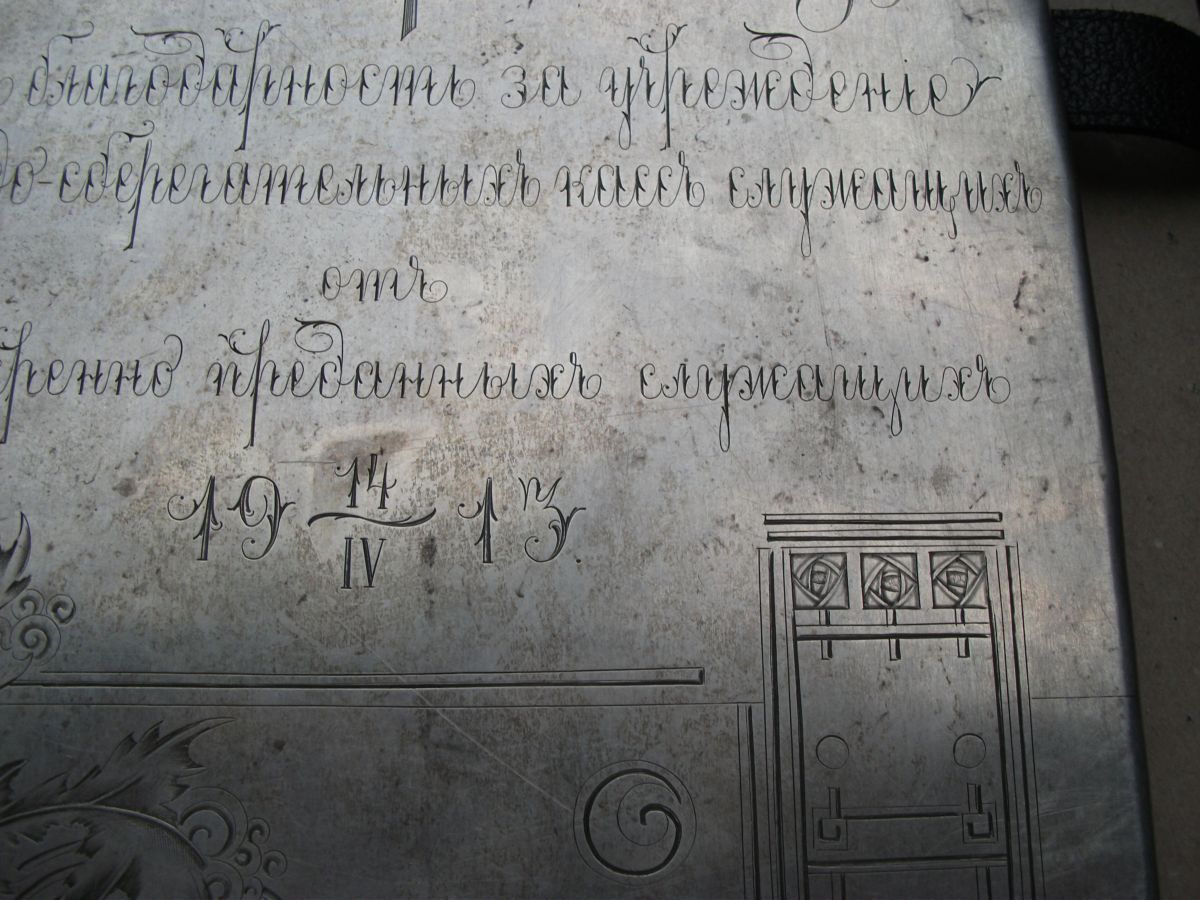 благодарность за учрежденіе
до-сберегательныхъ кассъ служащихъ
отъ
ренно преданныхъ служащихъ
19 14/IV 13